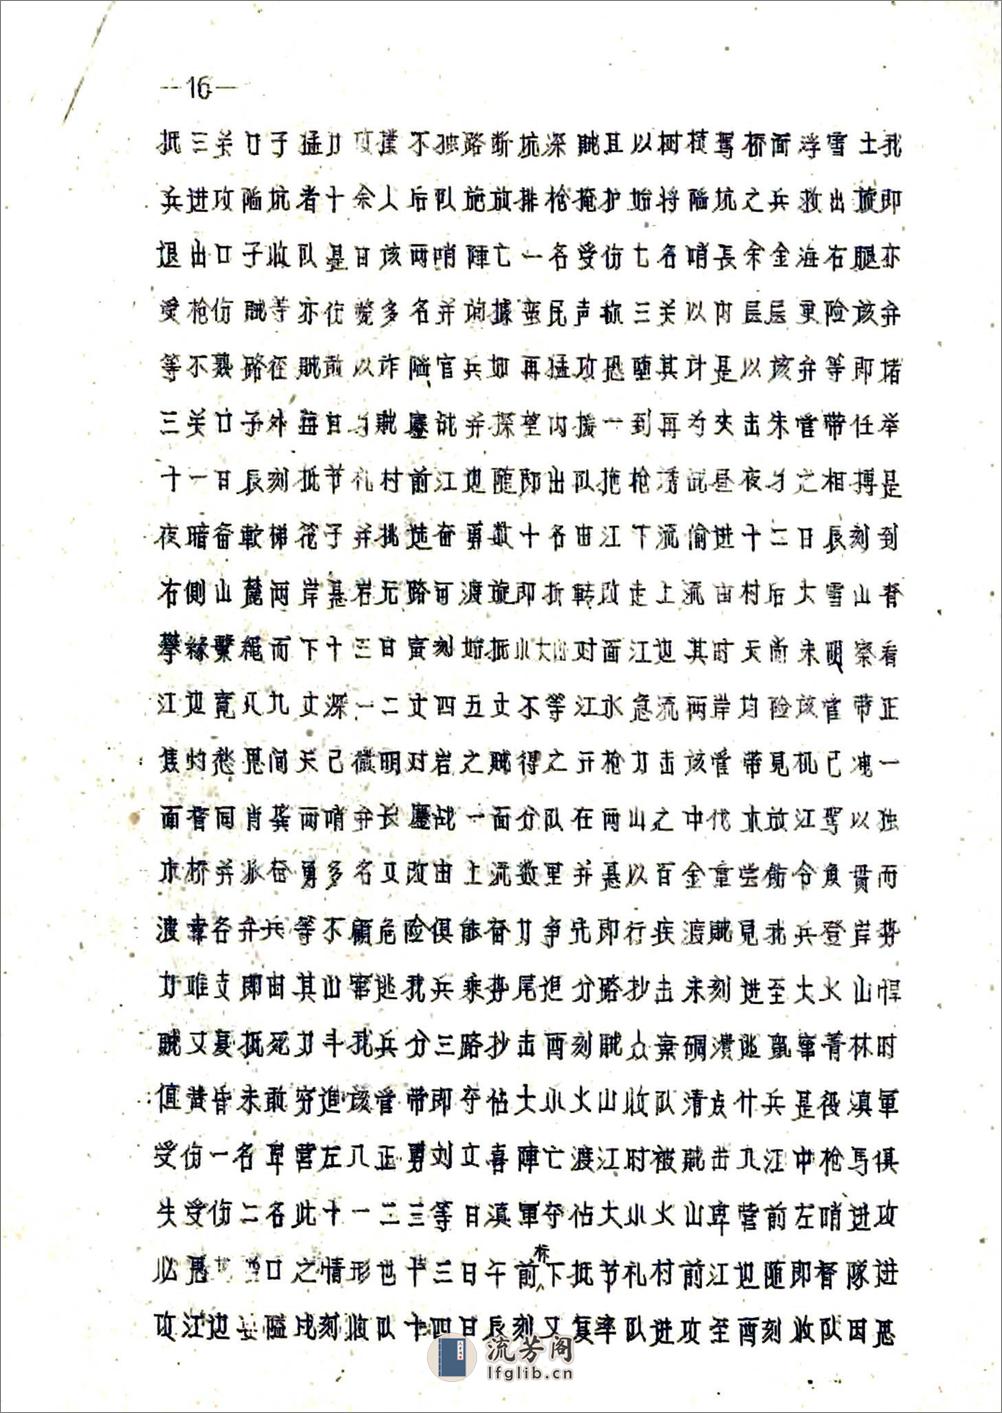 —16—
抵三关口子猛力攻撲不独路断坑深贼且以树横驾桥面浮雪土我
兵进攻陷坑者十余人后队施放排枪掩护始将陷坑之兵救出旋即
退出口子收队是日该两哨陣亡一名受伤七名哨長余金海右腿亦
受枪伤贼等亦伤毙多名并询據蛮民声称三关以内层层更险该弁
等不熟路径贼敢以诈陷官兵如再猛攻恐堕其计是以该弁等即堵
三关口子外每日与贼鏖战并探望内援一到再为夹击朱管带任举
十一日辰刻抵节礼村前江边随即出队拖枪诱试昼夜与之相搏是
夜暗备軟梯笼子并挑选奋勇数十名由江下流偷进十二日辰刻到
右側山麓两岸悬岩无路可渡旋即折转改走上流由村后大雪山脊
攀缘繫绳而下十三日寅刻始抵小火山对面江边其时天尚未明察看
江边竟八九丈深一二丈四五丈不等江水急流两岸均险该官带正
焦灼愁思间天已微明对岩之贼得之开枪力击该管带見机已洩一
面督同肖龚两哨弁长鏖战一面分队在两山之中伐木放江驾以独
木桥并派奋勇多名又改由上流数里并悬以百金重尝飭令负贯而
渡幸各弁兵等不顧危险俱能奋力争先即行疾渡贼見我兵登岸势
力难支即由其山窜逃我兵乘势尾追分路抄击未刻进至大火山悍
贼又复抵死力斗我兵分三路抄击酉刻贼众棄碉溃逃乱窜菁林时
值黄昏未敢穷追该管带即夺佔大小火山收队清点什兵是役滇軍
受伤一名卑营左八正勇刘立喜陣亡渡江时被贼击入江中枪馬俱
失受伤二名此十一二三等日滇軍夺佔大小火山卑营前左哨进攻
必悬 口之情形也十三日午前标下抵节礼村前江边随即督隊进
攻江边要隘戌刻收队十四日辰刻又复率队进攻至酉刻收队因悬
流芳阁
lfglib.cn